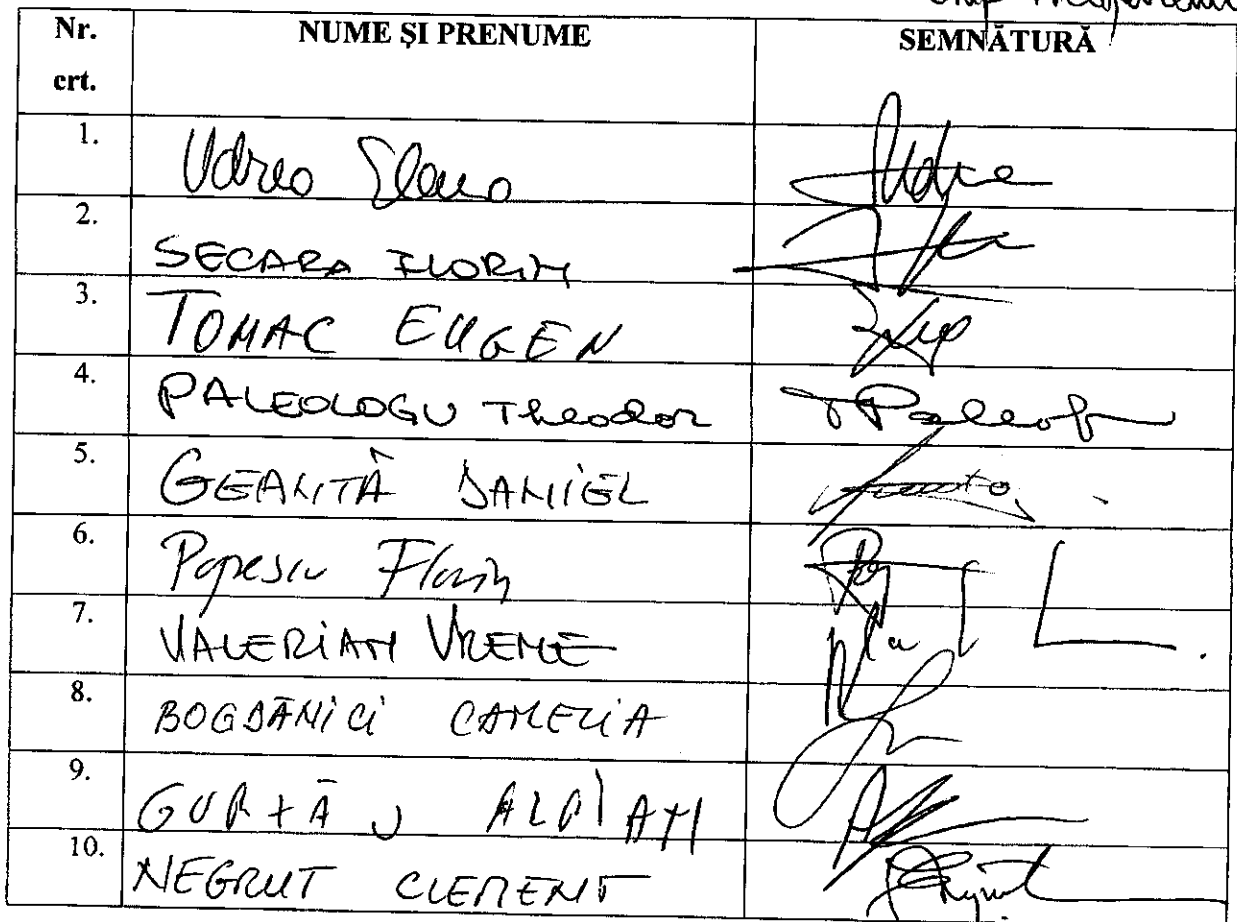 Nr. crt. NUME ȘI PRENUME SEMNĂTURĂ
1. Udrea Elena Udrea
2. SECARA FLORIN
3. TOMAC EUGEN
4. PALEOLOGU Theodor TPaleologu
5. GEANTĂ DANIEL
6. Popescu Florin
7. VALERIAN VREME
8. BOGDĂNICI CAMELIA
9. GURZĂU ADRIAN
10. NEGRUT CLEMENT